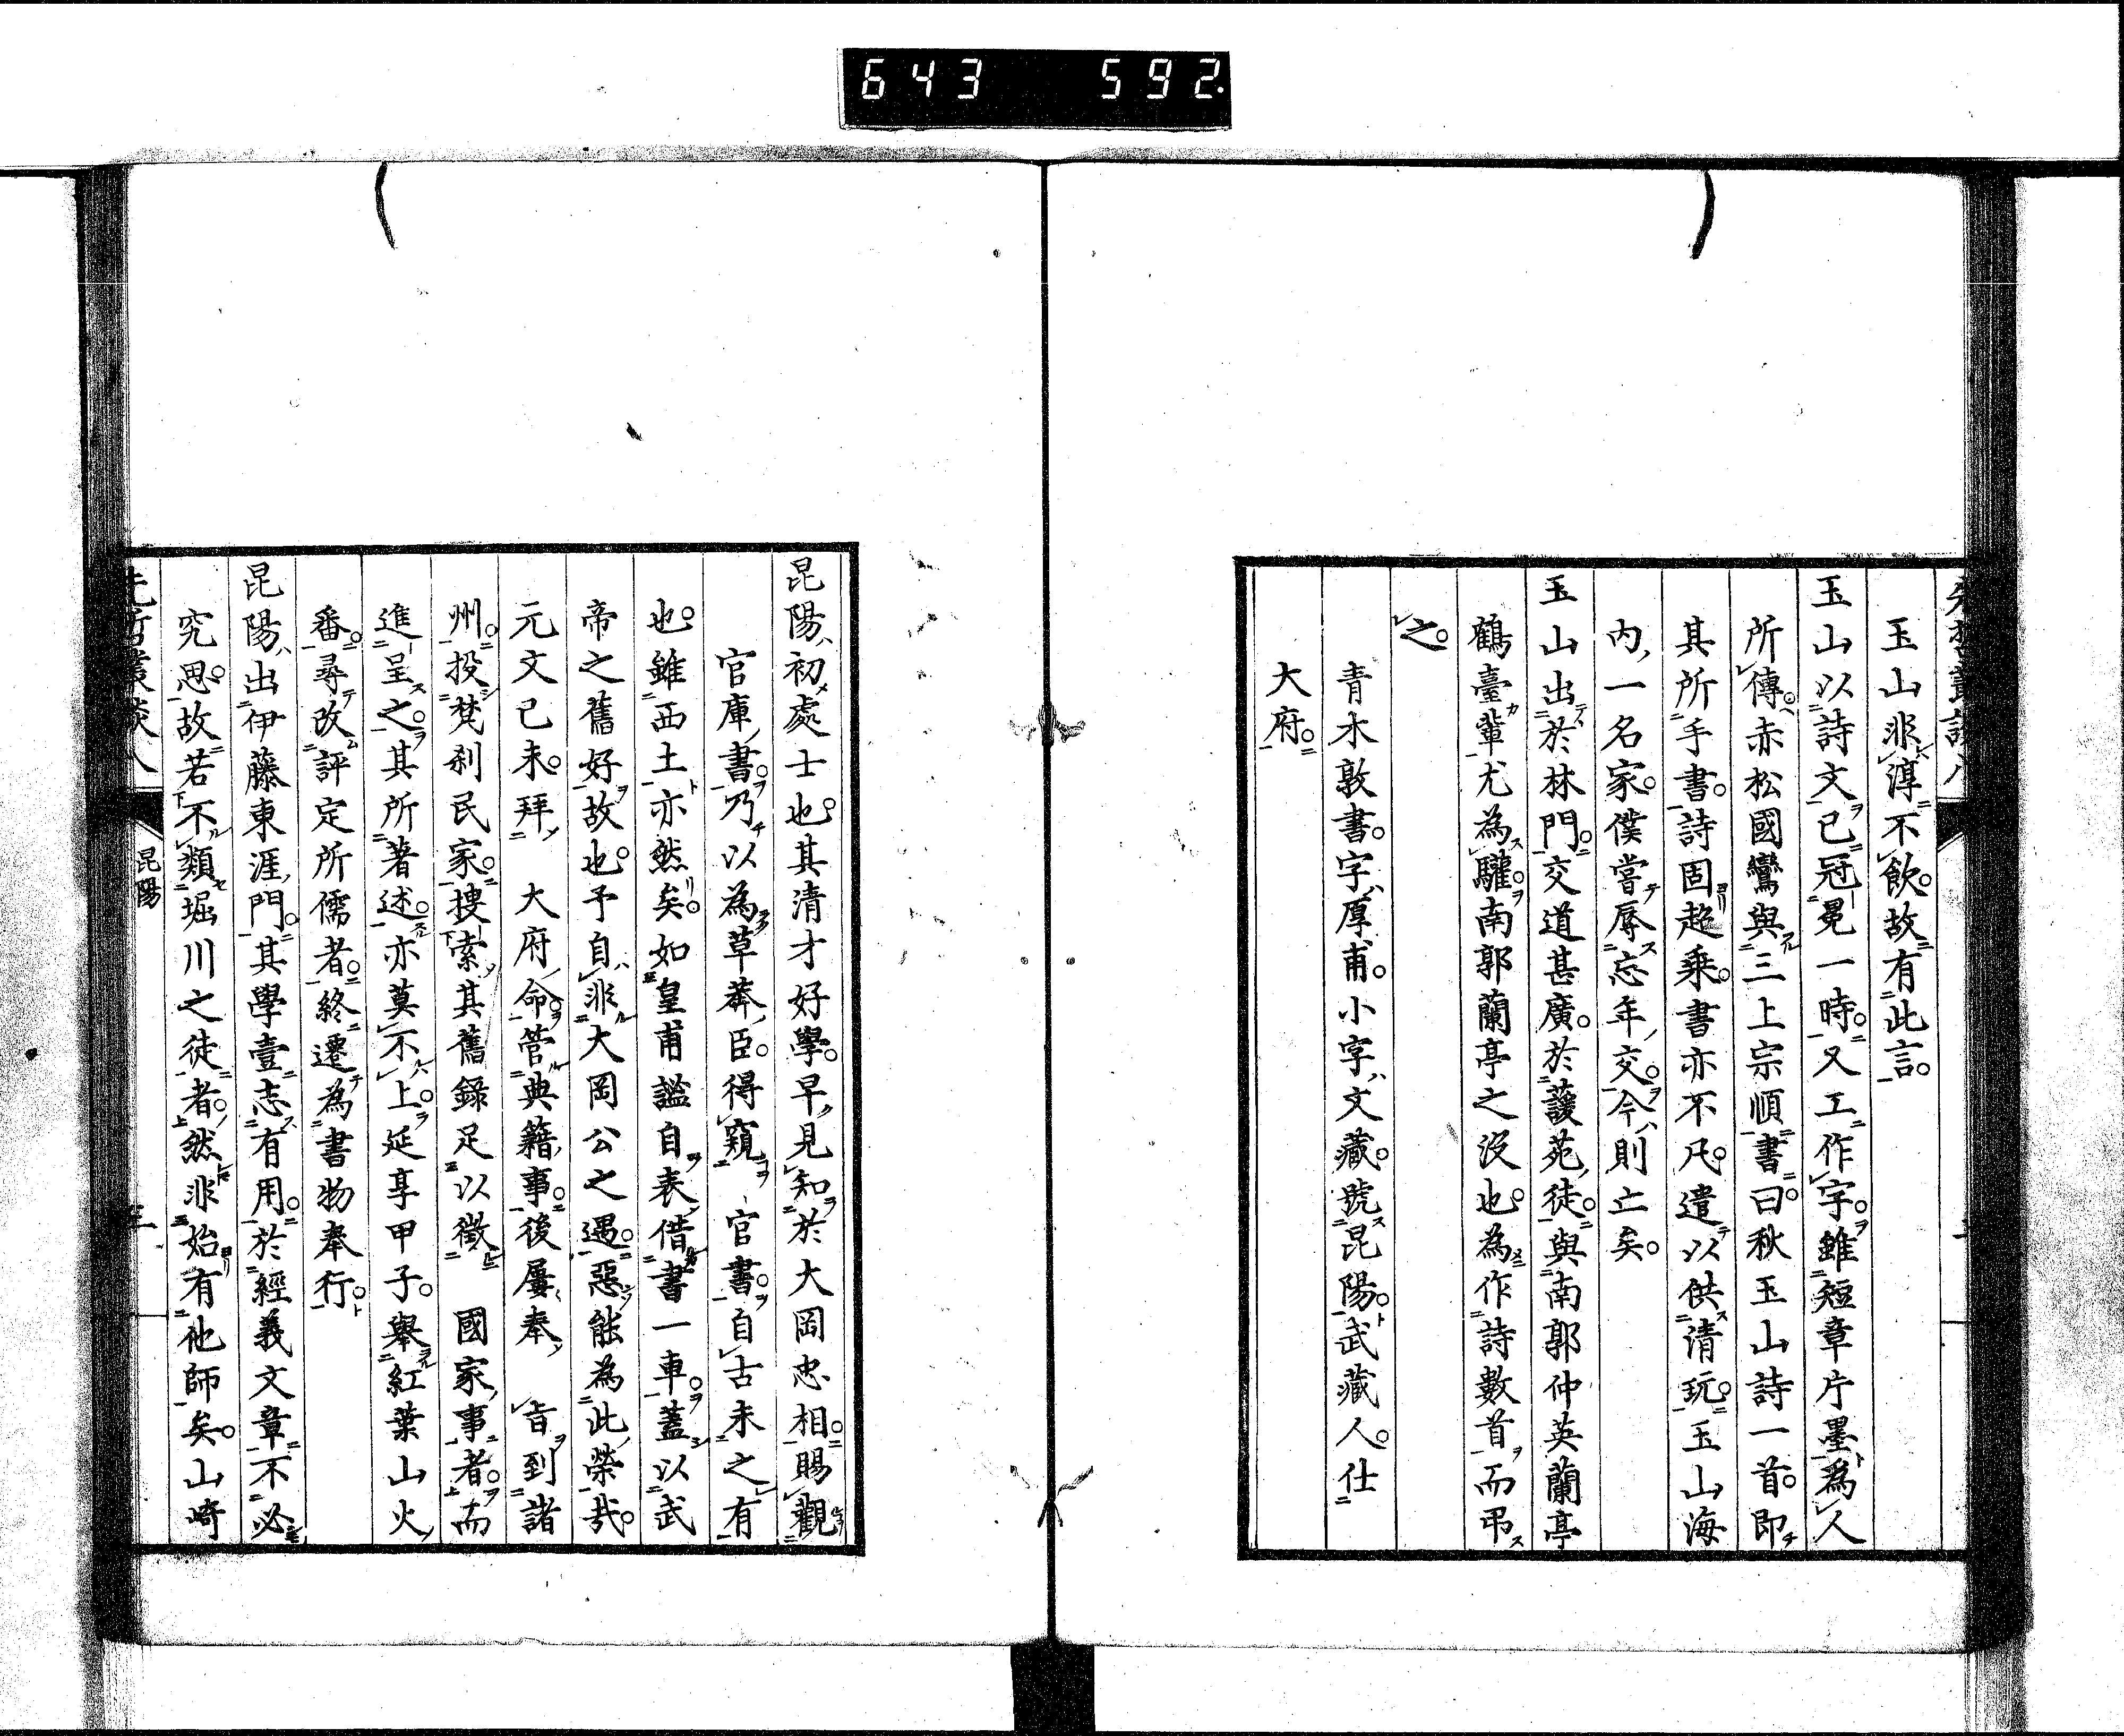 643 592.
玉山非淳不飲。故有此言。
玉山以詩文已冠冕一時。又工作字。雖短章片墨為人
所傳。赤松國鸞與三上宗順書曰。秋玉山詩一首。即
其所手書。詩固超乘。書亦不凡。遣以供清玩。玉山海
内一名家。僕嘗辱忘年交。今則亡矣。
玉山出於林門。交道甚廣。於蘐苑徒。與南郭仲英蘭亭
鶴臺輩尤為驩。南郭蘭亭之沒也。為作詩數首而弔
之。
青木敦書。字厚甫。小字文藏。號昆陽。武藏人。仕
大府。
昆陽初處士也。其清才好學。早見知於大岡忠相。賜觀
官庫書。乃以為草莽臣。得窺 官書。自古未之有
也。雖西土亦然矣。如皇甫謐自表借書一車。蓋以武
帝之舊好故也。予自非大岡公之遇。惡能為此榮哉。
元文己未。拜 大府命管典籍事。後屢奉 旨到諸
州。投梵刹民家。搜索其舊錄足以徵 國家事者。而
進呈之。其所著述。亦莫不上。延享甲子。舉紅葉山火
番。尋改評定所儒者。終遷為書物奉行。
昆陽出伊藤東涯門。其學壹志有用。於經義文章不必
究思。故若不類堀川之徒者。然非始有他師矣。山崎
先哲叢談八
昆陽